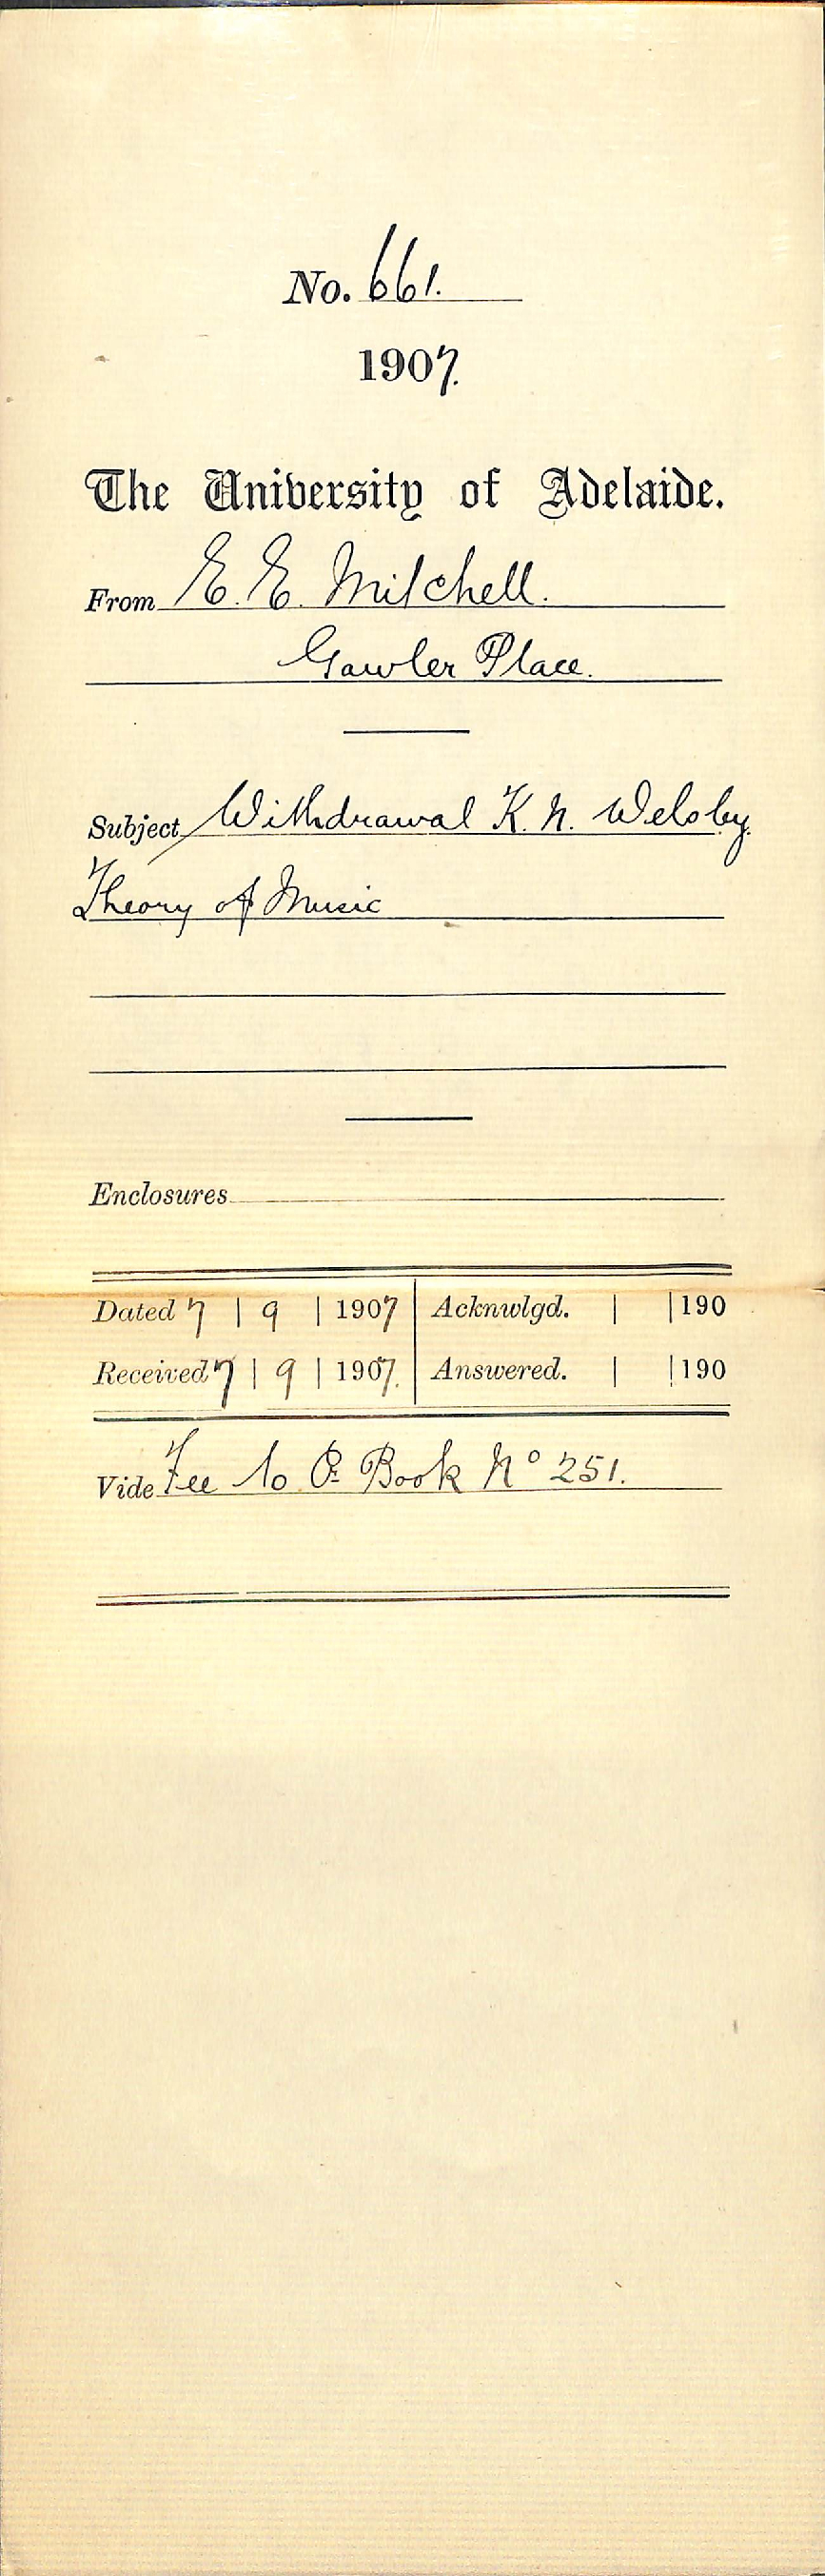 No. 661.
1907.
The University of Adelaide.
From E. E. Mitchell.
Gawler Place.
Subject Withdrawal K. N. Welsby.
Theory of Music
Enclosures
Dated 7 | 9 | 1907 | Acknwlgd. | | 190
Received 7 | 9 | 1907. | Answered. | | 190
Vide Fee Book No 251.